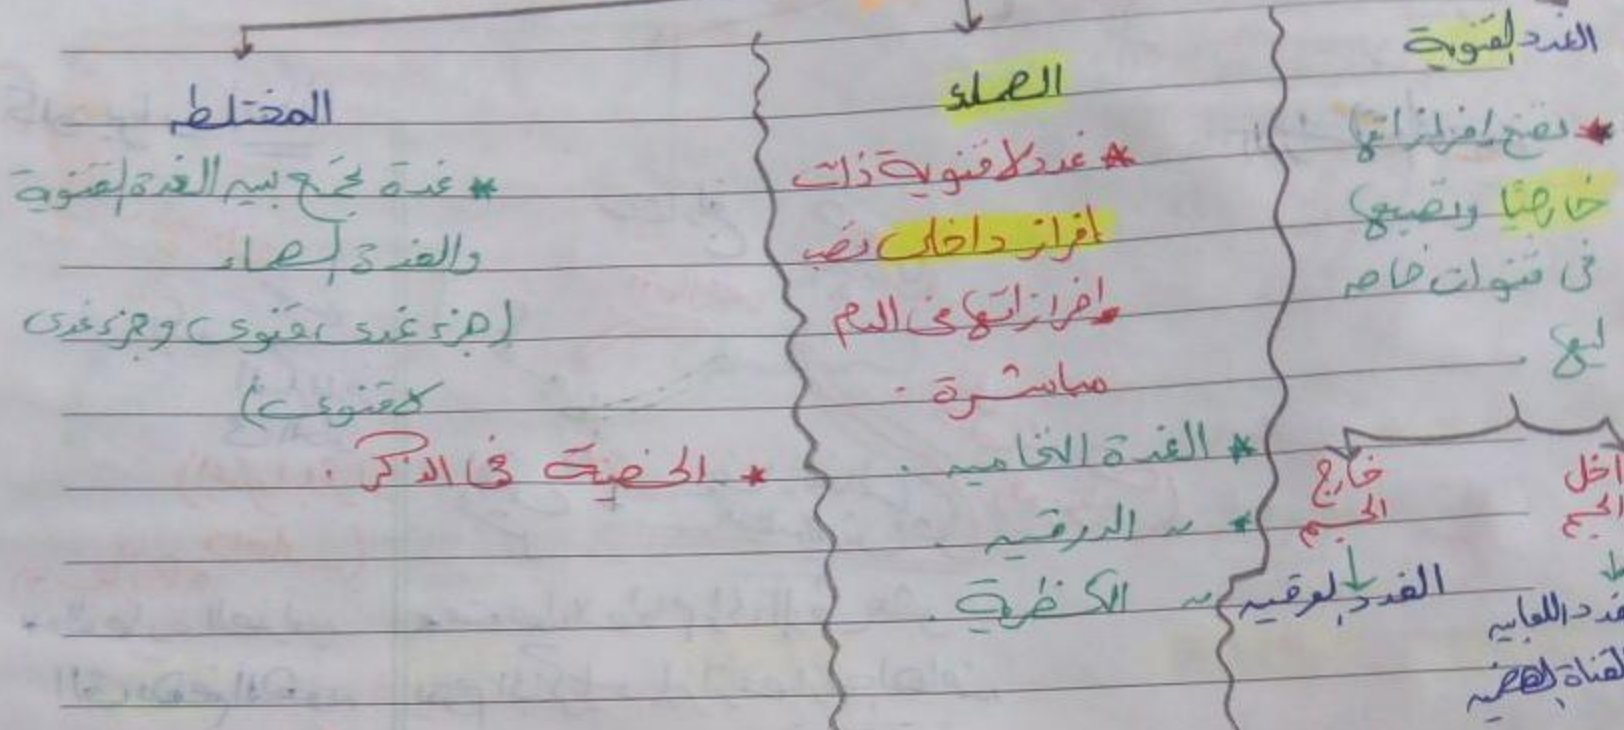 الغدد القنوية
* تضخ إفرازاتها
خارجيًا وتصبها
في قنوات خاصه
لها .
داخل الجسم
↓
الغدد اللعابيه
القناة الهضميه
خارج الجسم
↓
الغدد العرقيه
الصماء
* غدد لا قنوية ذات
إفراز داخلى تصب
إفرازاتها فى الدم
مباشرة .
* الغدة النخاميه .
* ~ الدرقيه .
~ الكظرية .
المختلطه
* غدة تجمع بين الغدة القنوية
والغدة الصماء
(جزء غدى قنوى وجزء غدى
لا قنوى)
* الخصية فى الذكر .